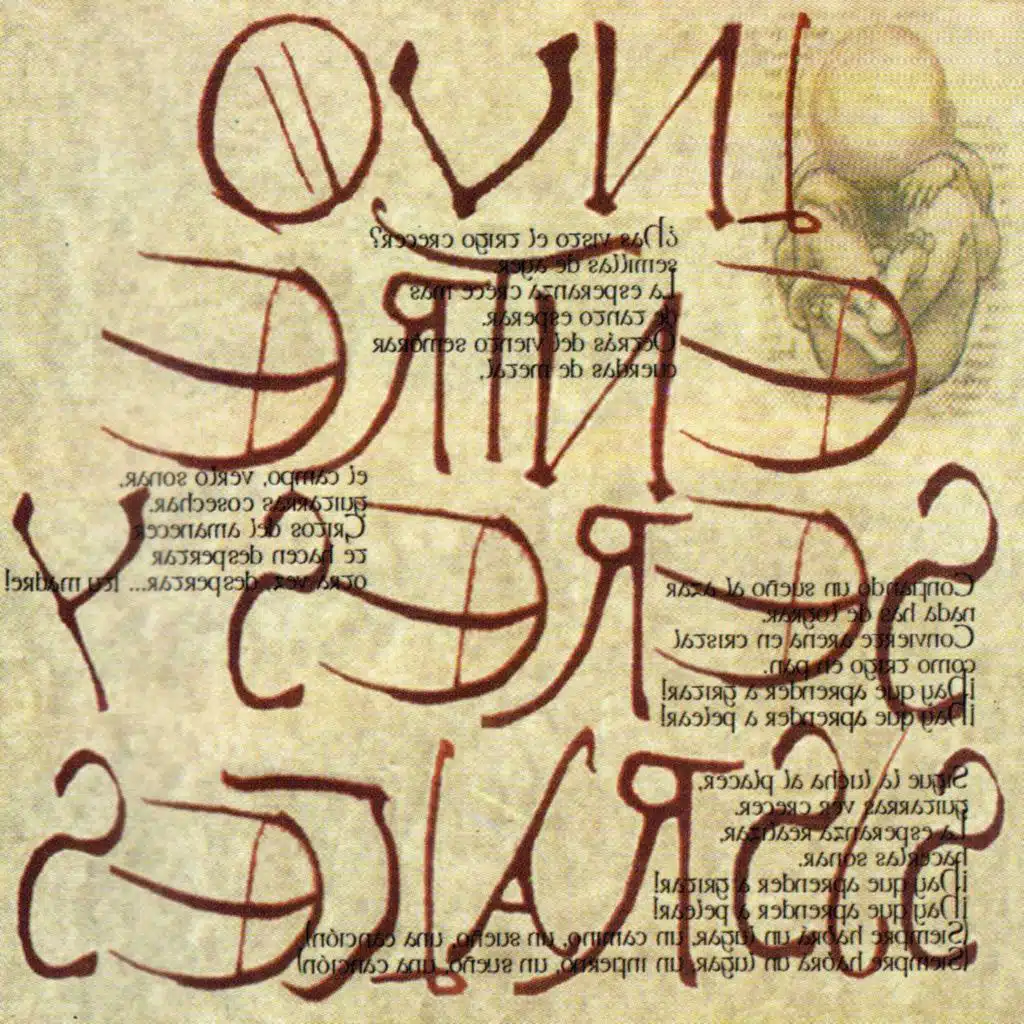 ENTRE
SERES Y
¿Has visto el trigo crecer?
semillas de ayer
La esperanza crece más
de tanto esperar.
Detrás del viento sembrar
cuerdas de metal,
el campo, verlo sonar,
guitarras cosechar.
Gritos del amanecer
te hacen despertar
otra vez, despertar... ¡tu madre!
Confiando un sueño al azar
nada has de lograr.
Convierte arena en cristal
como trigo en pan.
¡Hay que aprender a gritar!
¡Hay que aprender a pelear!
Sigue la lucha al placer,
guitarras ver crecer.
La esperanza realizar,
hacerlas sonar.
¡Hay que aprender a gritar!
¡Hay que aprender a pelear!
(Siempre habrá un lugar, un camino, un sueño, una canción!,
(Siempre habrá un lugar, un infierno, un sueño, una canción!)